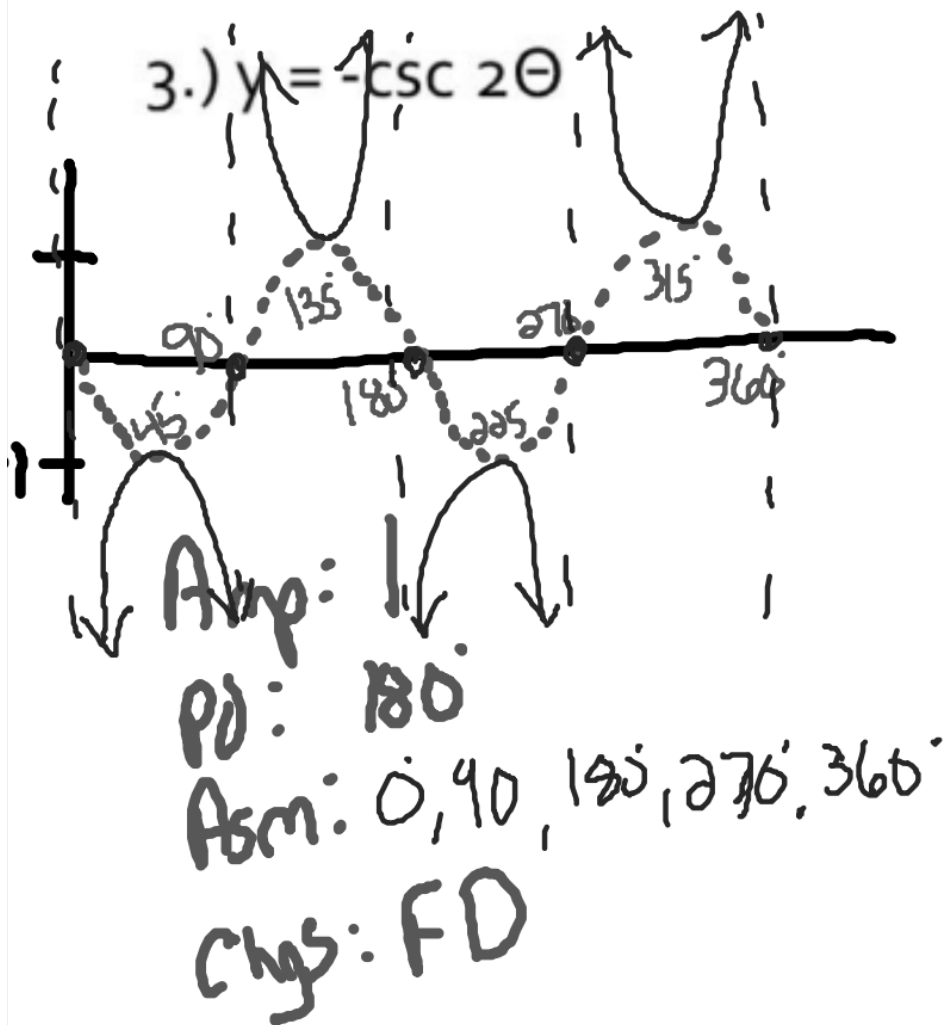 3.) y = -csc 2Θ
90°
135°
270°
315°
45°
180°
225
360°
1
Amp: 1
Pd: 180°
Asm: 0°, 90, 180°, 270°, 360°
Chgs: FD